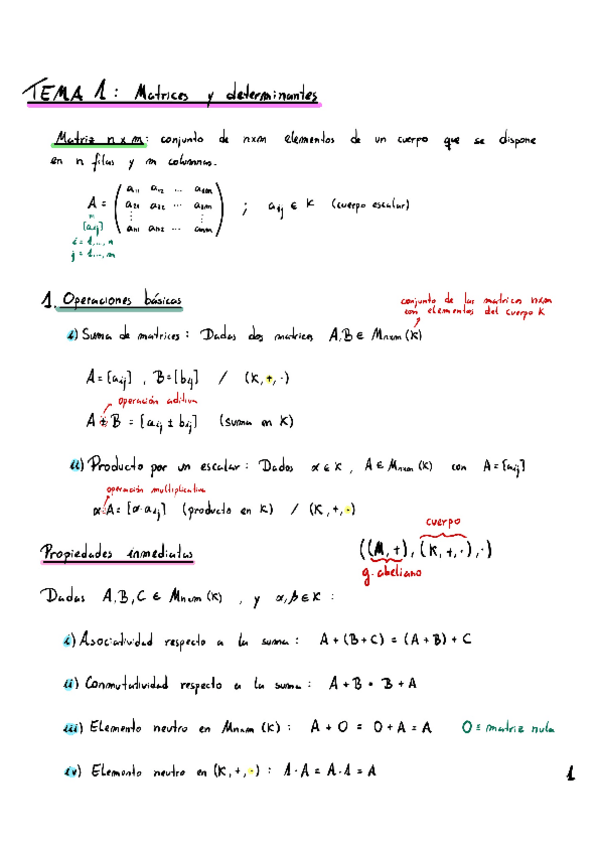 TEMA 1: Matrices y determinantes
Matriz n x m: conjunto de nxm elementos de un cuerpo que se dispone
en n filas y m columnas.
A = ( a11 a12 ... a1m
a21 a22 ... a2m
⋮ ⋮ ⋮
an1 an2 ... anm ) ; aij ∈ K (cuerpo escalar)
[aij]
i = 1..., n
j = 1..., m
1. Operaciones básicas
conjunto de las matrices nxm
con elementos del cuerpo K
i) Suma de matrices: Dadas dos matrices A,B ∈ Mnxm (K)
A = [aij] , B = [bij] / (K, +, ·)
operación aditiva
A ± B = [aij ± bij] (suma en K)
ii) Producto por un escalar: Dados α ∈ K , A ∈ Mnxm (K) con A = [aij]
operación multiplicativa
α·A = [α·aij] (producto en K) / (K, +, ·)
cuerpo
Propiedades inmediatas ((M, +), (K, +, ·), ·)
g. abeliano
Dadas A, B, C ∈ Mnxm (K) , y α, β ∈ K :
i) Asociatividad respecto a la suma: A + (B + C) = (A + B) + C
ii) Conmutatividad respecto a la suma: A + B = B + A
iii) Elemento neutro en Mnxm (K): A + O = O + A = A O ≡ matriz nula
iv) Elemento neutro en (K, +, ·): 1 · A = A · 1 = A
1